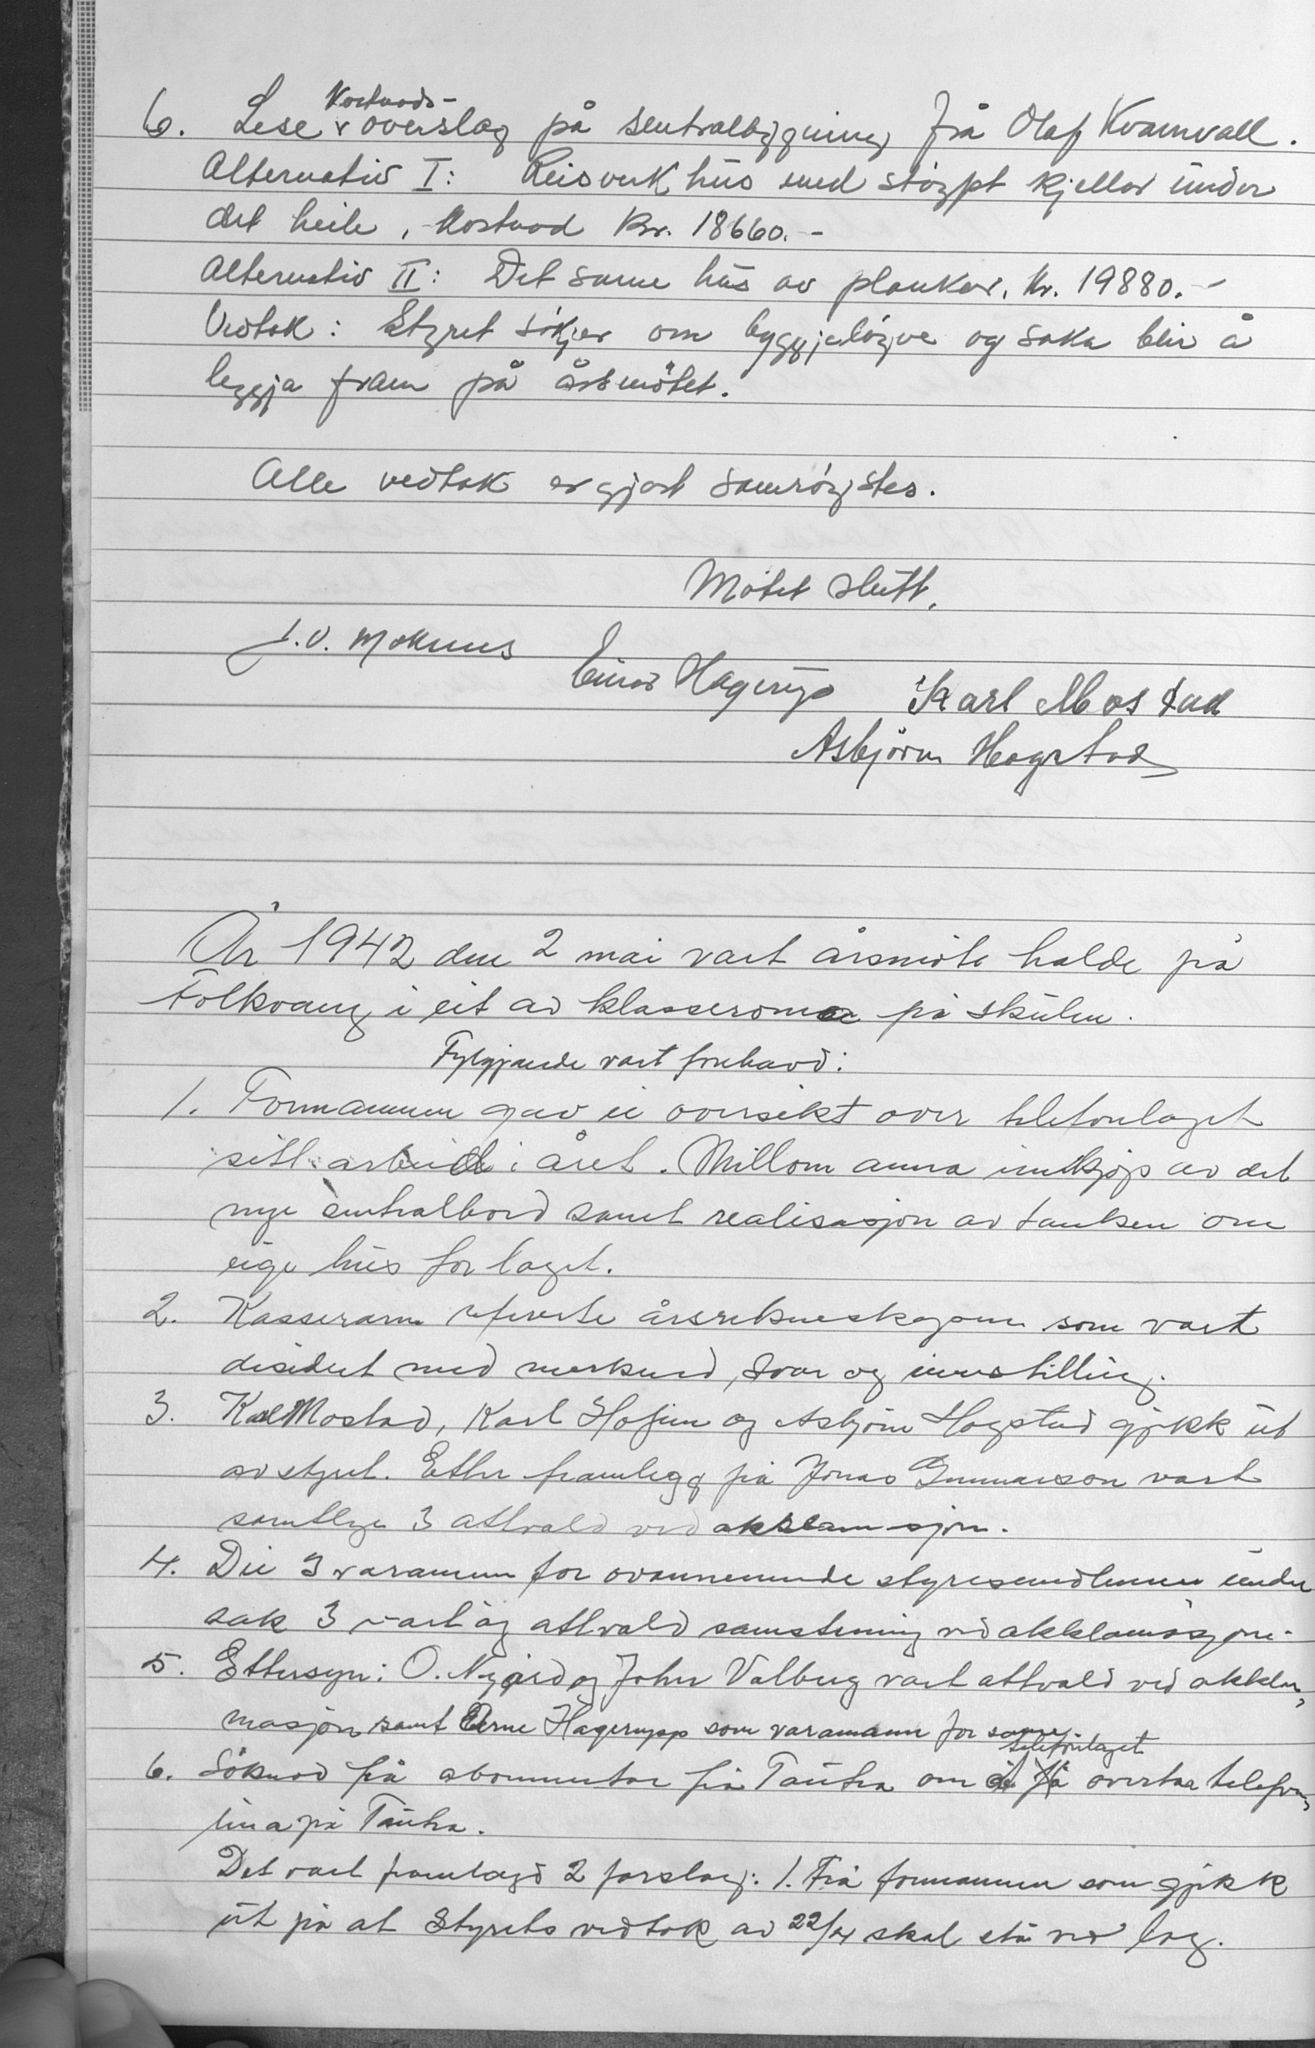 6. Lese kostnads-overslag på sentralbygning frå Olaf Kvamvall.
Alternativ I: Reisverk hus med støypt kjellar under
det heile, kostnad kr. 18660.-
Alternativ II: Det same hus av plankar. Kr. 19880.-
Vedtak: Styret søkjer om byggjeløyve og saka blir å
leggja fram på årsmötet.
Alle vedtak er gjort samrøystes.
Mötet slutt.
J. O. Moknes
Einar Hagerup Karl Mostad
Asbjörn Hogstad
År 1942 den 2 mai vart årsmöte halde på
Folkvang i eit av klasseroma på skulen.
Fylgjande vart forehavd:
1. Formannen gav ei oversikt over telefonlaget
sitt arbeid i året. Millom anna innkjøp av det
nye sentralbord samt realisasjon av tanken om
eige hus for laget.
2. Kasseraren refererte årsrekneskapen som vart
desidert med merknad, svar og innstilling.
3. Karl Mostad, Karl Hofem og Asbjörn Hogstad gjekk ut
av styret. Etter framlegg frå Jonas Gunnarson vart
samtlege 3 attvald ved akklamasjon.
4. Dei 3 varamenn for ovannemnde styresmedlemmer under
sak 3 vart òg attvald samstemmig ved akklamasjon.
5. Ettersyn: O. Nygård og John Valberg vart attvald ved akkla-
masjon samt Arne Hagerupp som varamann for same
6. Söknad frå abonnentar frå Tautra om at telefonlaget få overtaa telefon-
lina på Tautra.
Det vart framlagd 2 forslag: 1. Frå formannen som gjekk
ut på at Styrets vedtak av 22/4 skal stå ved lag.